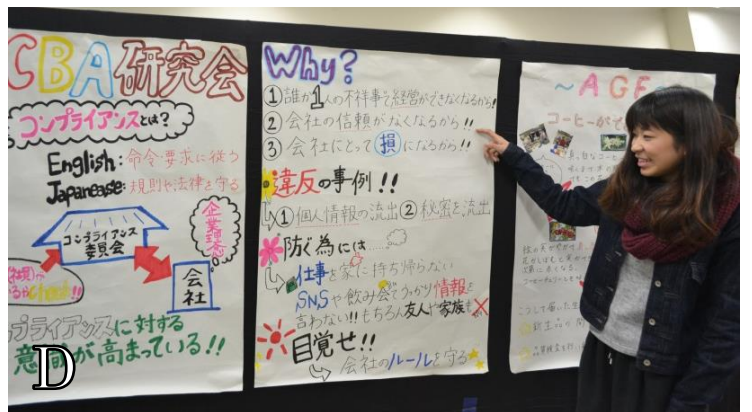 CBA研究会
コンプライアンスとは?
English: 命令・要求に従う
Japanease: 規則や法律を守る
コンプライアンス
委員会
企業理念
会社
check!!
プライアンスに対する
意 が高まっている!!
D
Why?
①誰か1人の不祥事で経営ができなくなるから!
②会社の信頼がなくなるから!!
③会社にとって損になるから!!
違反の事例!!
①個人情報の流出②秘密を流出
防ぐ為には……
仕事を家に持ち帰らない
SNSや飲み会でうっかり情報を
言わない!!もちろん友人や家族も×
目覚せ!!
会社のルールを守る
~AGF~
コーヒーがで